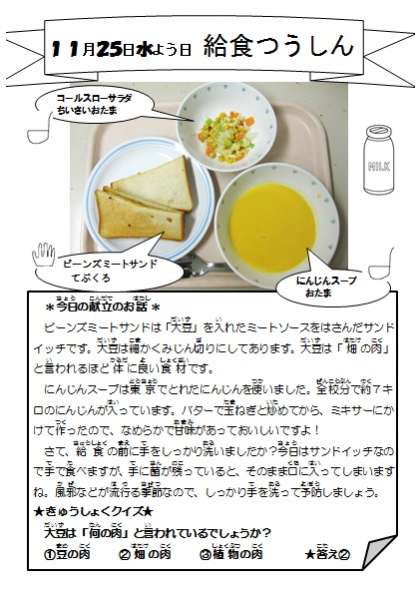 11月25日水よう日 給食つうしん
コールスローサラダ
ちいさいおたま
MILK
ビーンズミートサンド
てぶくろ
にんじんスープ
おたま
＊今日の献立のお話＊
ビーンズミートサンドは「大豆」を入れたミートソースをはさんだサンド
イッチです。大豆は細かくみじん切りにしてあります。大豆は「畑の肉」
と言われるほど体に良い食材です。
にんじんスープは東京でとれたにんじんを使いました。全校分で約７キ
ロのにんじんが入っています。バターで玉ねぎと炒めてから、ミキサーにか
けて作ったので、なめらかで甘味があっておいしいですよ！
さて、給食の前に手をしっかり洗いましたか？今日はサンドイッチなの
で手で食べますが、手に菌が残っていると、そのまま口に入ってしまいます
ね。風邪などが流行る季節なので、しっかり手を洗って予防しましょう。
★きゅうしょくクイズ★
大豆は「何の肉」と言われているでしょうか？
①豆の肉 ②畑の肉 ③植物の肉 ★答え②